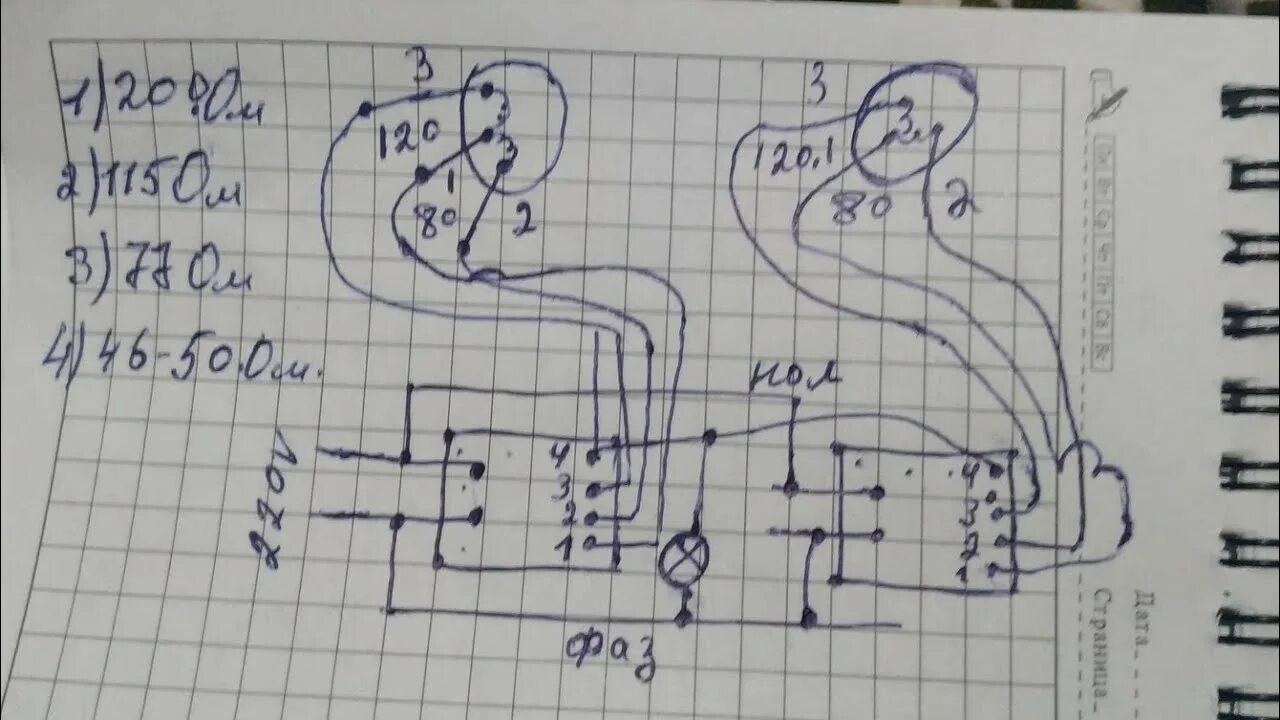 1) 200 Ом
2) 115 Ом
3) 77 Ом
4) 46-50 Ом.
3
120
1
80
2
3
3
120.1
80
2
нол
220V
4
3
2
1
4
3
2
1
фаз
Пн Вт Ср Чт Пт Сб Вс
Дата
Страница